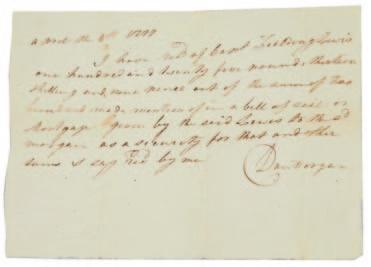 I have Recd of Capt Fielding Lewis
one hundred and twenty five pounds thirteen
shilling and nine pence out of the sum of two
hundred made mention of in a bill of sail or
Mortgage given by the said Lewis to the sd
morgan as a security for that and other
sums I say Recd by me
Dan Morgan